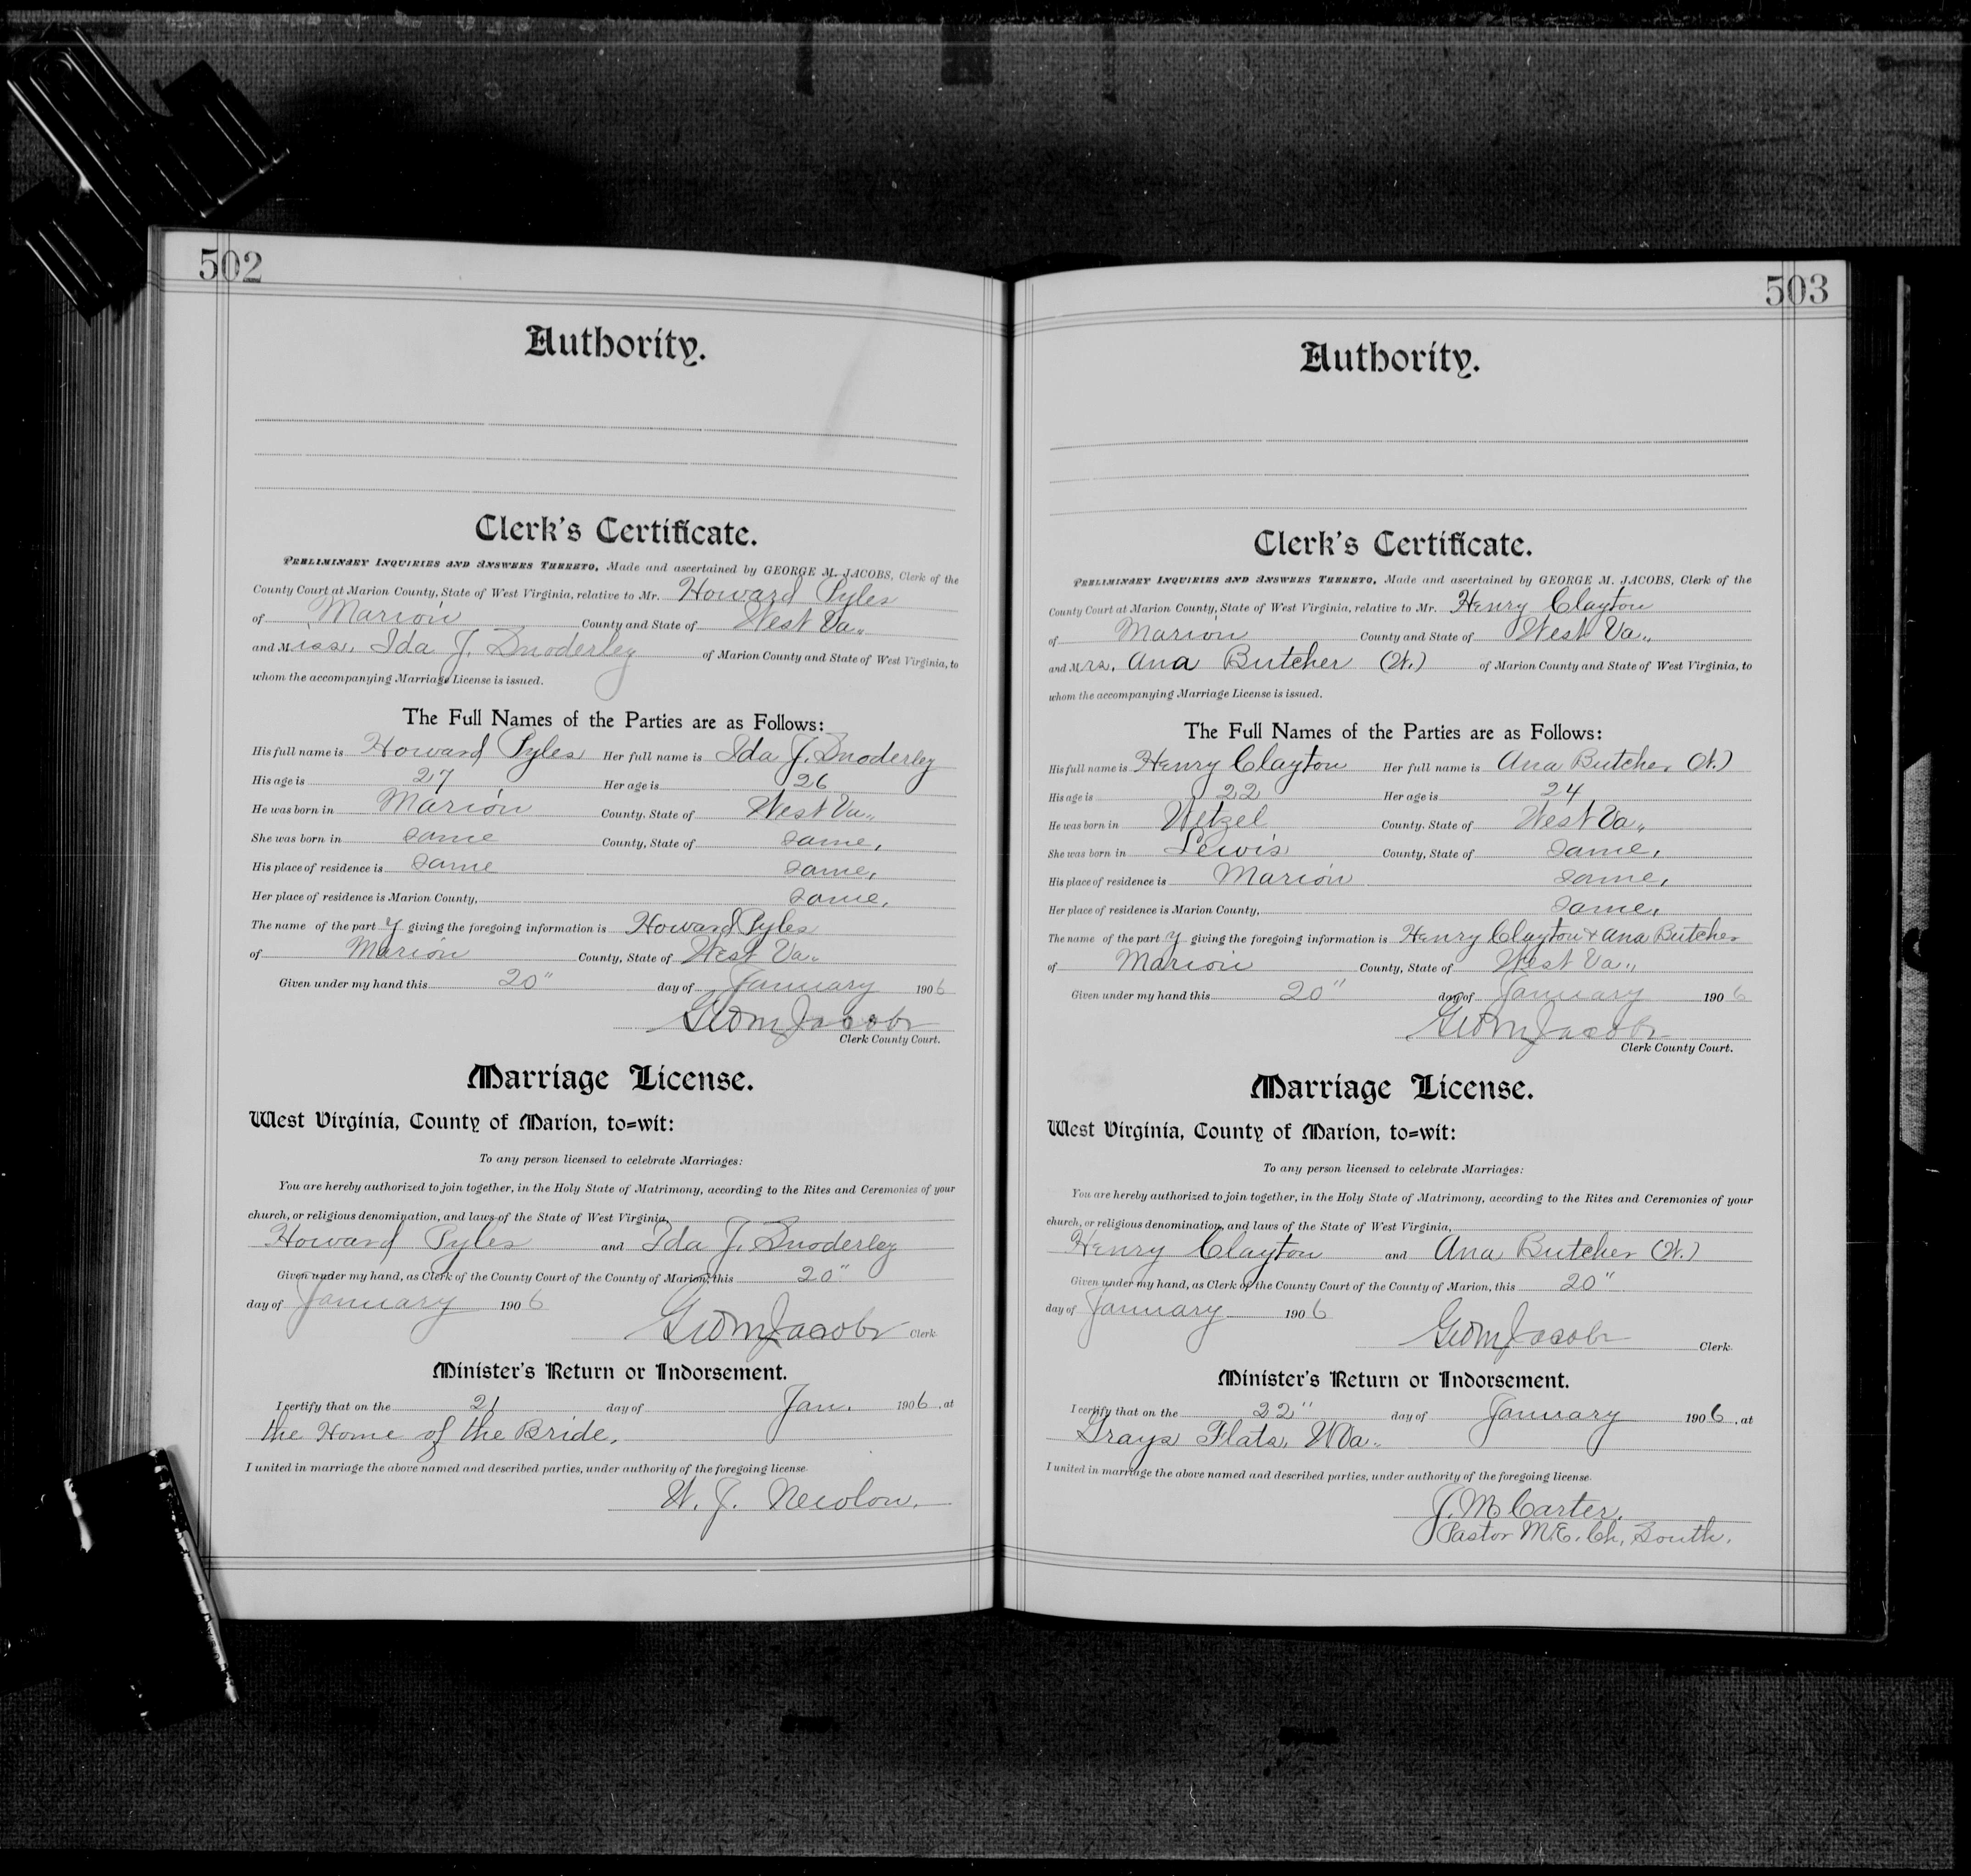 502
Authority.
Clerk's Certificate.
Preliminary Inquiries and Answers Thereto, Made and ascertained by GEORGE M. JACOBS, Clerk of the
County Court at Marion County, State of West Virginia, relative to Mr. Howard Pyles
of Marion County and State of West Va.
and Miss. Ida J. Snoderley of Marion County and State of West Virginia, to
whom the accompanying Marriage License is issued.
The Full Names of the Parties are as Follows:
His full name is Howard Pyles Her full name is Ida J. Snoderley
His age is 27 Her age is 26
He was born in Marion County, State of West Va.
She was born in same County, State of same,
His place of residence is same same,
Her place of residence is Marion County, same,
The name of the party giving the foregoing information is Howard Pyles
of Marion County, State of West Va.
Given under my hand this 20" day of January 1906
Geo M Jacobs
Clerk County Court.
Marriage License.
West Virginia, County of Marion, to=wit:
To any person licensed to celebrate Marriages:
You are hereby authorized to join together, in the Holy State of Matrimony, according to the Rites and Ceremonies of your
church, or religious denomination, and laws of the State of West Virginia,
Howard Pyles and Ida J. Snoderley
Given under my hand, as Clerk of the County Court of the County of Marion, this 20"
day of January 1906 Geo M Jacobs Clerk.
Minister's Return or Indorsement.
I certify that on the 21 day of Jan. 1906, at
the Home of the Bride,
I united in marriage the above named and described parties, under authority of the foregoing license.
W. J.
503
Authority.
Clerk's Certificate.
Preliminary Inquiries and Answers Thereto, Made and ascertained by GEORGE M. JACOBS, Clerk of the
County Court at Marion County, State of West Virginia, relative to Mr. Henry Clayton
of Marion County and State of West Va.,
and Mrs. Ana Butcher (W.) of Marion County and State of West Virginia, to
whom the accompanying Marriage License is issued.
The Full Names of the Parties are as Follows:
His full name is Henry Clayton Her full name is Ana Butcher (W.)
His age is 22 Her age is 24
He was born in Wetzel County, State of West Va.,
She was born in Lewis County, State of same,
His place of residence is Marion same,
Her place of residence is Marion County, same,
The name of the party giving the foregoing information is Henry Clayton & Ana Butcher
of Marion County, State of West Va.,
Given under my hand this 20" day of January 1906
Geo M Jacobs
Clerk County Court.
Marriage License.
West Virginia, County of Marion, to=wit:
To any person licensed to celebrate Marriages:
You are hereby authorized to join together, in the Holy State of Matrimony, according to the Rites and Ceremonies of your
church, or religious denomination, and laws of the State of West Virginia,
Henry Clayton and Ana Butcher (W.)
Given under my hand, as Clerk of the County Court of the County of Marion, this 20"
day of January 1906 Geo M Jacobs Clerk.
Minister's Return or Indorsement.
I certify that on the 22" day of January 1906, at
Grays Flats, W Va.
I united in marriage the above named and described parties, under authority of the foregoing license.
J. M Carter.
Pastor M.E. Ch, South.